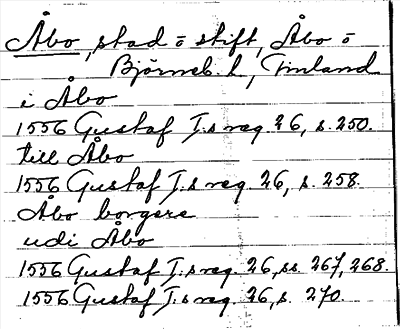 Åbo, stad o stift, Åbo o
Björneb. l, Finland
i Åbo
1556 Gustaf I.s reg. 26, s. 250.
till Åbo
1556 Gustaf I.s reg. 26, s. 258.
Åbo borgere
udi Åbo
1556 Gustaf I.s reg. 26, ss. 267, 268.
1556 Gustaf I.s reg. 26, s. 270.